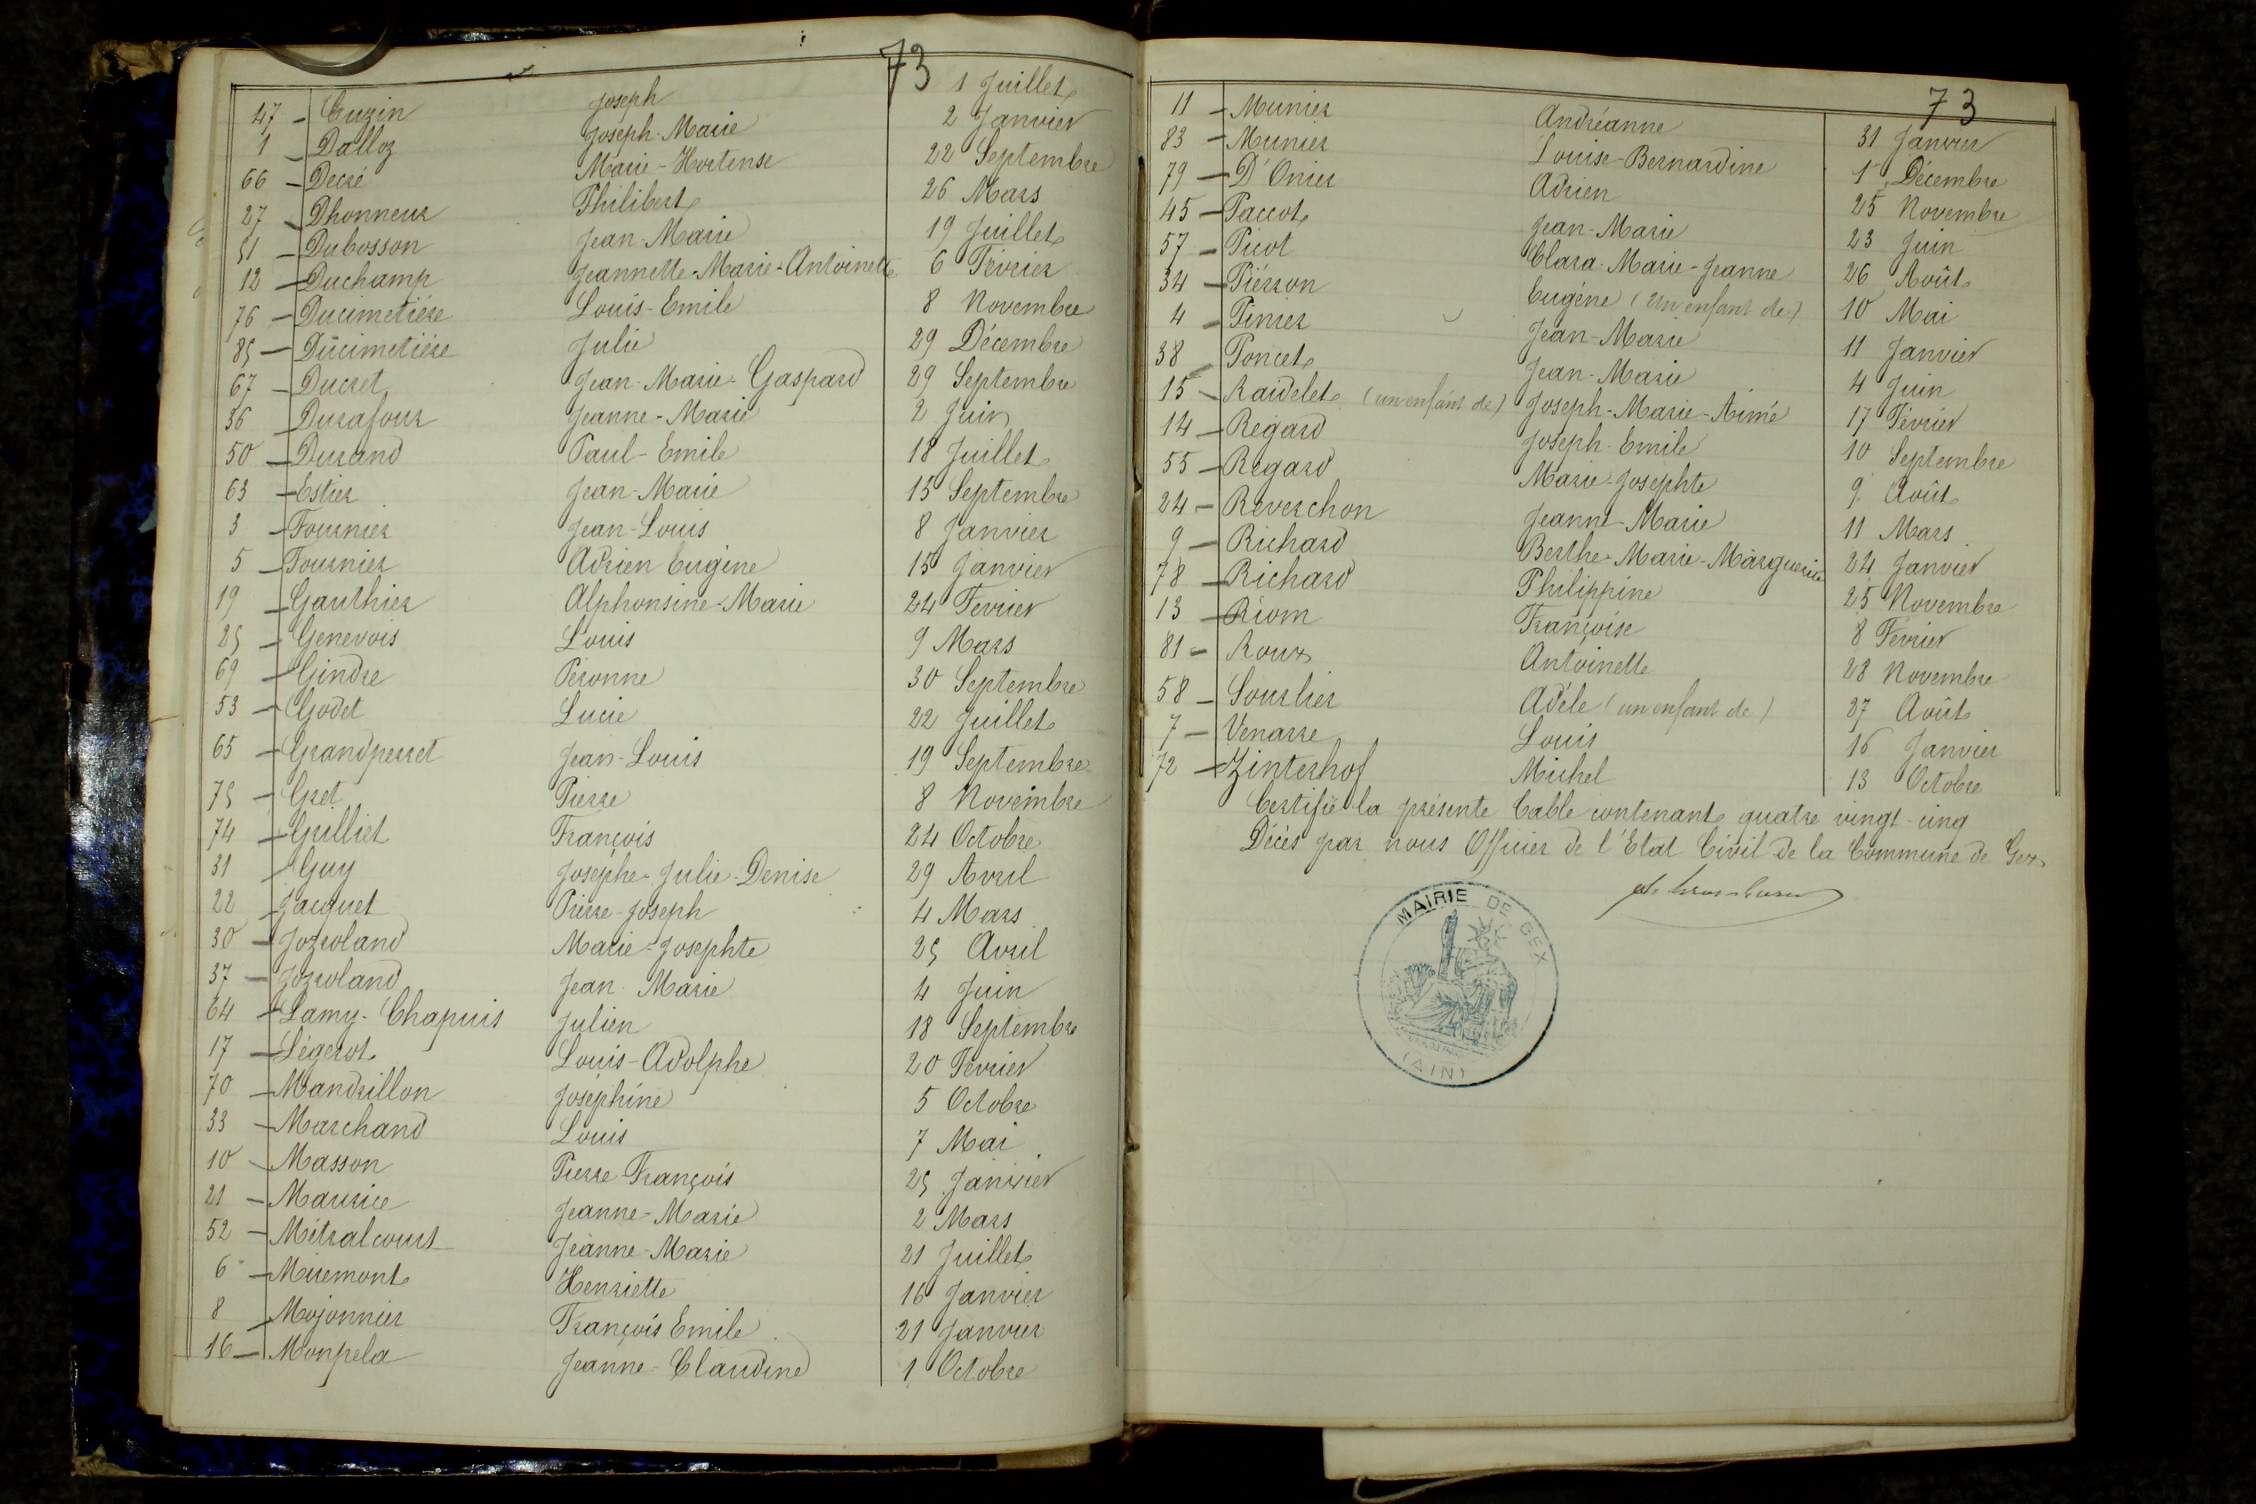 73
47 - Cuzin Joseph 1 Juillet
1 - Dalloz Joseph-Marie 2 Janvier
66 - Decré Marie-Hortense 22 Septembre
27 - Dhonneur Philibert 26 Mars
51 - Dubosson Jean-Marie 19 Juillet
12 - Duchamp Jeannette-Marie-Antoinette 6 Février
76 - Ducimetière Louis-Emile 8 Novembre
85 - Ducimetière Julie 29 Décembre
67 - Ducret Jean-Marie-Gaspard 29 Septembre
36 - Durafour Jeanne-Marie 2 Juin
50 - Durand Paul-Emile 18 Juillet
63 - Estier Jean-Marie 15 Septembre
3 - Fournier Jean-Louis 8 Janvier
5 - Fournier Adrien Eugène 15 Janvier
19 - Gauthier Alphonsine-Marie 24 Fevrier
25 - Genevois Louis 9 Mars
69 - Gindre Peronne 30 Septembre
53 - Godet Lucie 22 Juillet
65 - Grandperret Jean-Louis 19 Septembre
75 - Gret Pierre 8 Novembre
74 - Grilliet François 24 Octobre
31 - Guy Josephe-Julie-Denise 29 Avril
22 - Jacquet Pierre-Joseph 4 Mars
30 - Jozroland Marie-Josephte 25 Avril
37 - Jozroland Jean-Marie 4 Juin
64 - Lamy-Chapuis Julien 18 Septembre
17 - Légerot Louis-Adolphe 20 Fevrier
70 - Mandrillon Joséphine 5 Octobre
33 - Marchand Louis 7 Mai
10 - Masson Pierre François 25 Janvier
21 - Maurice Jeanne-Marie 2 Mars
52 - Métralcourt Jeanne-Marie 21 Juillet
6 - Miremont Henriette 16 Janvier
8 - Mojonnier François Emile 21 Janvier
16 - Monpela Jeanne-Claudine 1 Octobre
73
11 - Munier Andréanne 31 Janvier
83 - Munier Louise-Bernardine 1 Décembre
79 - D'Onier Adrien 25 Novembre
45 - Paccot Jean-Marie 23 Juin
57 - Picot Clara-Marie-Jeanne 26 Août
34 - Piérson Eugéne (un enfant de) 10 Mai
4 - Pinier Jean-Marie 11 Janvier
38 - Poncet Jean-Marie 4 Juin
15 - Raidelet (un enfant de) Joseph-Marie-Aimé 17 Février
14 - Regard Joseph-Emile 10 Septembre
55 - Regard Marie-Josephte 9 Août
24 - Reverchon Jeanne-Marie 11 Mars
9 - Richard Berthe-Marie-Marguerite 24 Janvier
78 - Richard Philippine 25 Novembre
13 - Riom Françoise 8 Février
81 - Roux Antoinette 28 Novembre
58 - Sourlier Adèle (un enfant de) 27 Août
7 - Venarre Louis 16 Janvier
72 - Zinterhof Michel 13 Octobre
Certifié la présente Table contenant quatre vingt-cinq
Décès par nous Officier de l'Etat Civil de la Commune de Gex
MAIRIE DE GEX
(AIN)